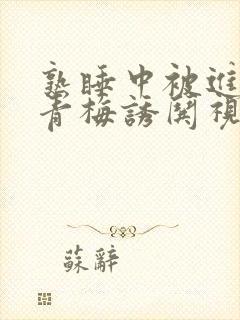 熟睡中被進
青梅誘関視
蘇辭